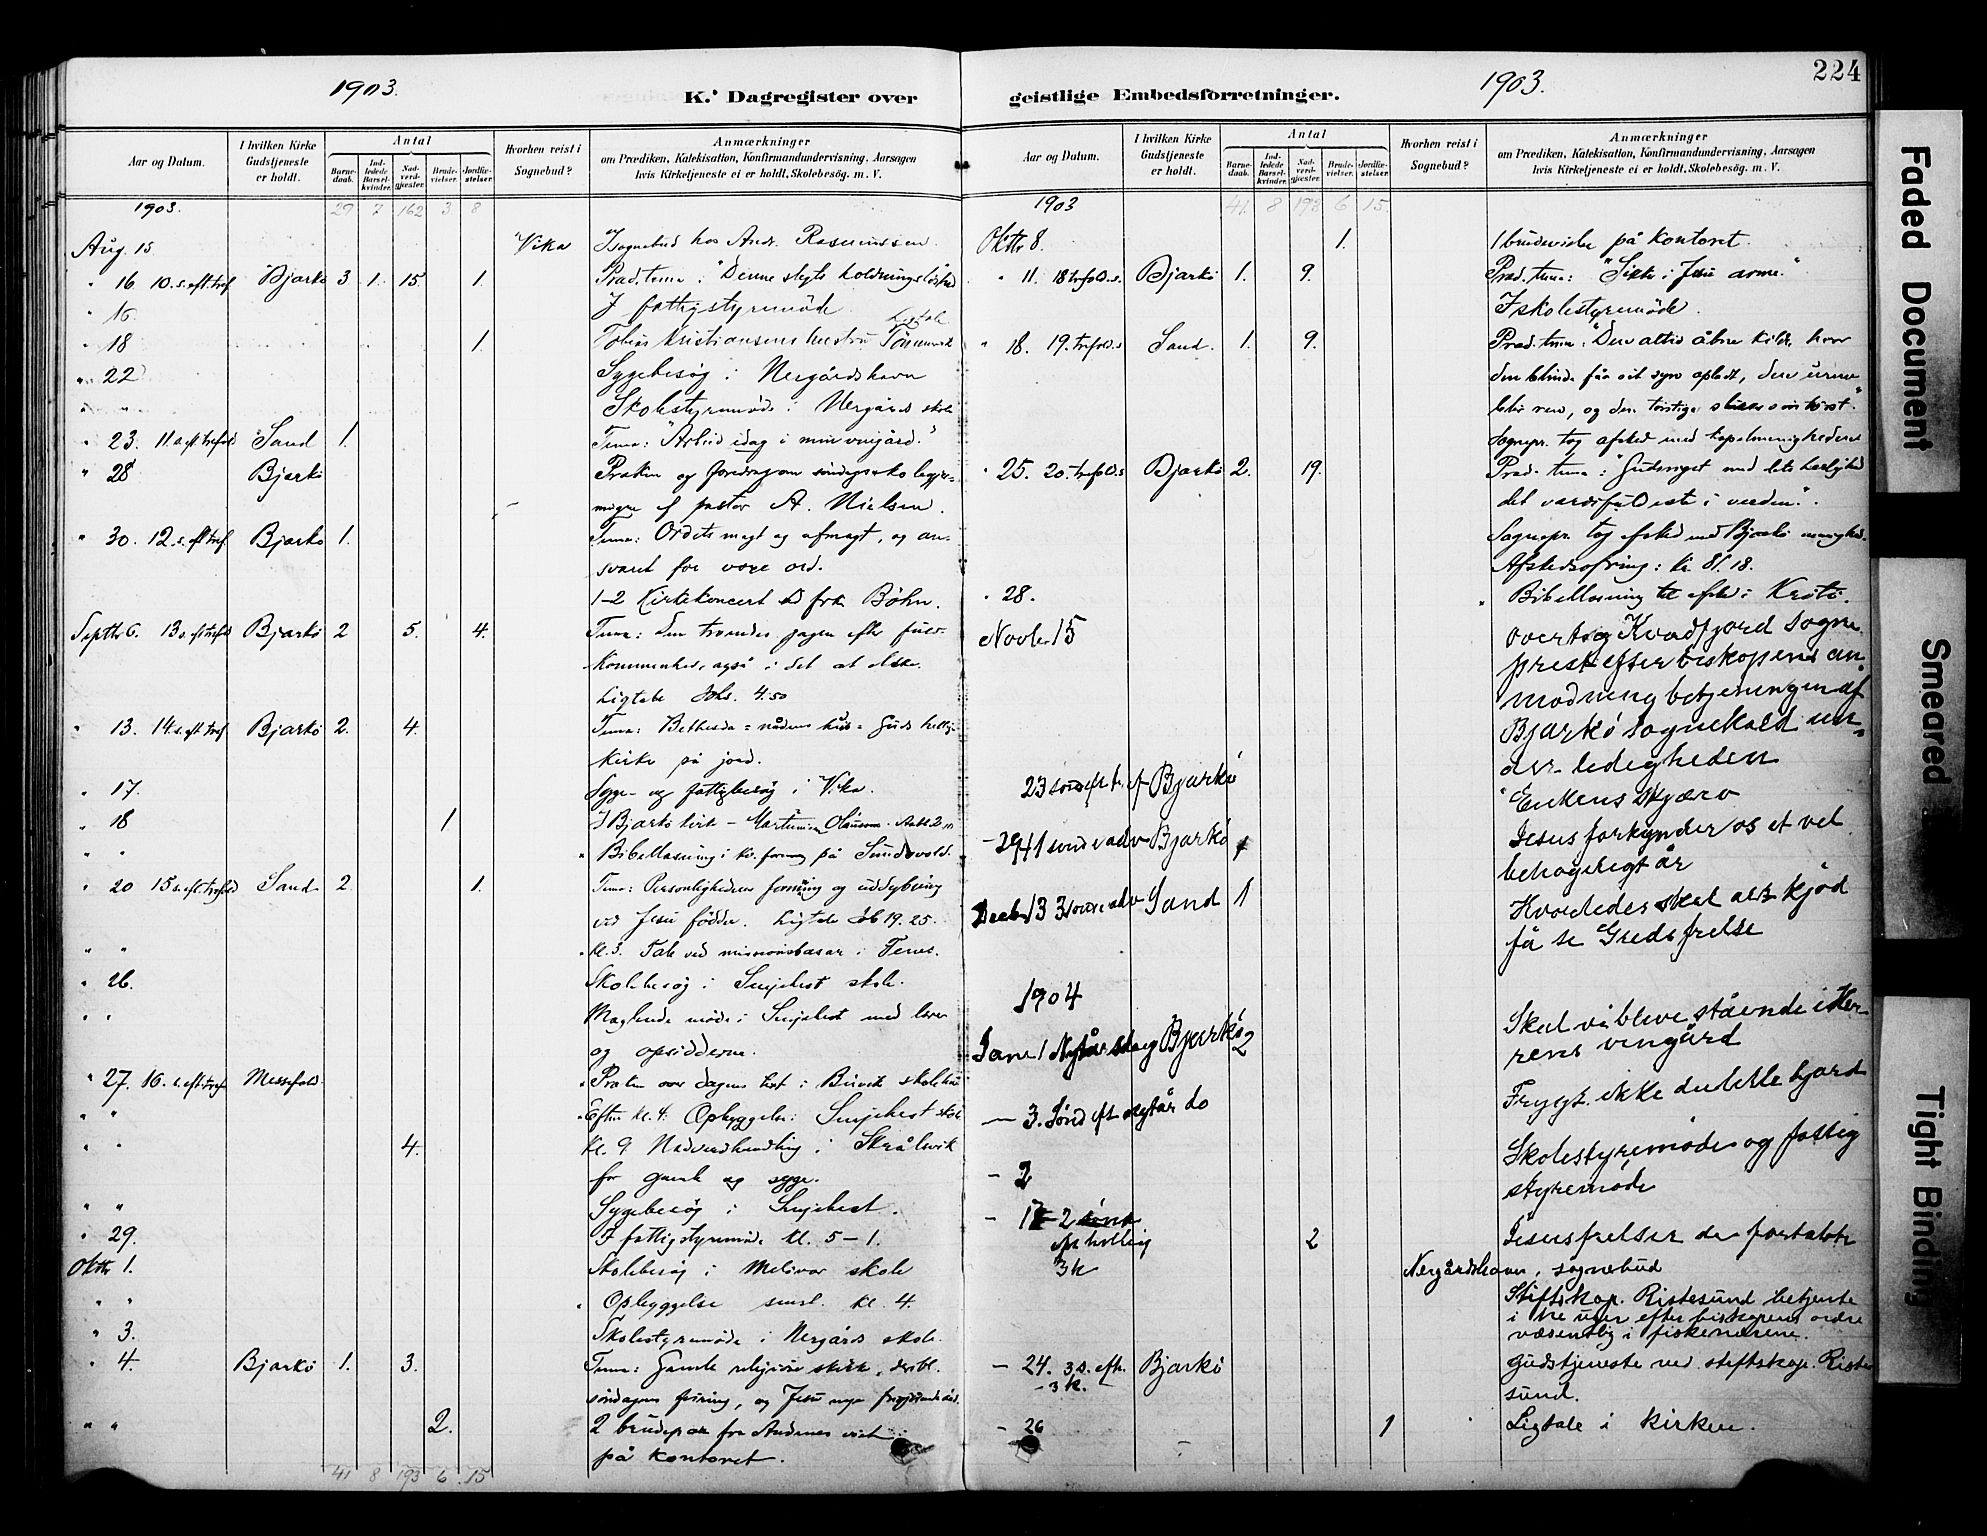 1903.
K. Dagregister over
Aar og Datum.
I hvilken Kirke Gudstjeneste er holdt.
Antal
Barnedaab.
Indledede Barselkvinder.
Nadverdgjester.
Brudevielser.
Jordfæstelser.
Hvorhen reist i Sognebud?
Anmærkninger
om Prædiken, Katekisation, Konfirmandundervisning, Aarsagen
hvis Kirketjeneste ei er holdt, Skolebesög. m. V.
1903. 29 7 162 3 8
Aug. 15 Vika I sognebud hos Andr. Rasmussen
" 16 10. s. eft. tref Bjarkö 3 1. 15. 1. Præd. tema: "Denne slegts holdningslöshed
" 16 I fattigstyremöde
Ligtale
" 18 1. Tobias Kristiansens hustru
" 22 Sygebesög i Nergårdshavn
" " Skolestyremöde i Nergård skole
" 23. 11. s. eft. trefold Sand 1. Tema: "Arbeid idag i min vingård."
" 28 Bjarkö Præken og foredrag om
af pastor A. Nielsen.
" 30. 12. s. eft. tref. Bjarkö 1. Tema: Ordets magt og afmagt, og an-
svaret for vore ord.
1-2 Kirkekoncert frk Böhn.
Septbr 6. 13. s. ef. trefold Bjarkö 2 5. 4. Tema: Den troendes jagen efter fuld-
kommenhed, også i det at elske.
Ligtale Joh. 4.50
" 13. 14. s. eft. tref Bjarkö 2. 4. Tema: Bethesda = nådens hus = Guds hellige
kirke på jord.
" 17. Syge- og fattigbesög i Vika.
" 18 1 I Bjarkö kirke -
" " " Bibellæsning i på Sundsvold.
" 20 15 s. eft. trefold Sand 2. 1. Tema: Personlighedens og uddybning
ved Jesu födder. Ligtale Job 19.25.
" " " kl. 3. Tale ved missionsbasar i
" 26. Skolebesög i skole.
" " Mæglende möde i med lærer
og opsidderne.
" 27. 16. s. eft. tref. Messefald. " Præken over dagens text i skolehus
" " " Efter kl. 4. Opbyggelse i skole
" " 4. kl. 9. Nadverdhandling i
for gamle og syge.
" " Sygebesög i
" 29. I fattigstyremöde kl. 5-1.
Oktbr 1. Skolebesög i Melövær skole
" " " Opbyggelse smst. kl. 4.
" 3. Skolestyremöde i Nergård skole.
" 4. Bjarkö 1. 3. Tema: Gamle religiöse skikke, deribl.
söndagens feiring, og Jesu nye
" " 2. 2 brudepar fra Andenes viet
på kontoret.
41 8 193 6 15
geistlige Embedsforretninger.
1903.
224
Aar og Datum.
I hvilken Kirke Gudstjeneste er holdt.
Antal
Barnedaab.
Indledede Barselkvinder.
Nadverdgjester.
Brudevielser.
Jordfæstelser.
Hvorhen reist i Sognebud?
Anmærkninger
om Prædiken, Katekisation, Konfirmandundervisning, Aarsagen
hvis Kirketjeneste ei er holdt, Skolebesög. m. V.
1903 41. 8 193 6 15.
Oktbr 8. 1. 1 brudevielse på kontoret.
" 11. 18 trefold. s. Bjarkö 1. 9. Præd. tema: "Sikker i Jesu arme."
I skolestyremöde.
" 18. 19. trefold. s Sand. 1. 9. Præd. tema: "Den altid åbne kilde, hvor
den blinde får sit syn opladt, den urene
blir ren, og den törstige slukker sin törst."
Sognepr. tog afsked med kapelmenigheden
" 25. 20. trefold. s Bjarkö 2. 19. Præd. tema: "Gudsriget med dets herlighed
det værdifuldeste i verden".
Sognepr. tog afsked med Bjarkö menighed.
Afskedsofring: kr. 81.18.
" 28. " Bibellæsning til afsked i
Novbr 15 overtog Kvædfjord sogne
prest efter biskopens an-
modning betjeningen af
Bjarkö sognekald un-
der ledigheden
23 sönd eft tref Bjarkö "Enkens skjærv
- 29 1 sönd i adv Bjarkö 1 Jesus forkynder os et vel
behageligt år
Decbr 13 3 sönd i adv Sand 1 Hvorledes skal alt kjöd
få se Guds frelse
1904
Janr 1 Nytårsdag Bjarkö 2 Skal vi blive stående i Her-
rens vingård
- 3. Sönd eft nytår do Frygt ikke du lille hjord
- 2 Skolestyremöde og fattig
styremöde
- 17 2 sönd
eft hellig
3 k 2 Jesus frelser de fortabte
Nergårdshavn, sognebud
Stiftskap. Ristesund betjente
i tre uger efter biskopens ordre
væsentlig i fiskeværene.
- 24. 3 s. efth. Bjarkö Gudstjeneste ved stiftskap. Riste
- 3 k. sund.
- 26 1 Ligtale i kirken.
Faded Document
Smeared
Tight Binding